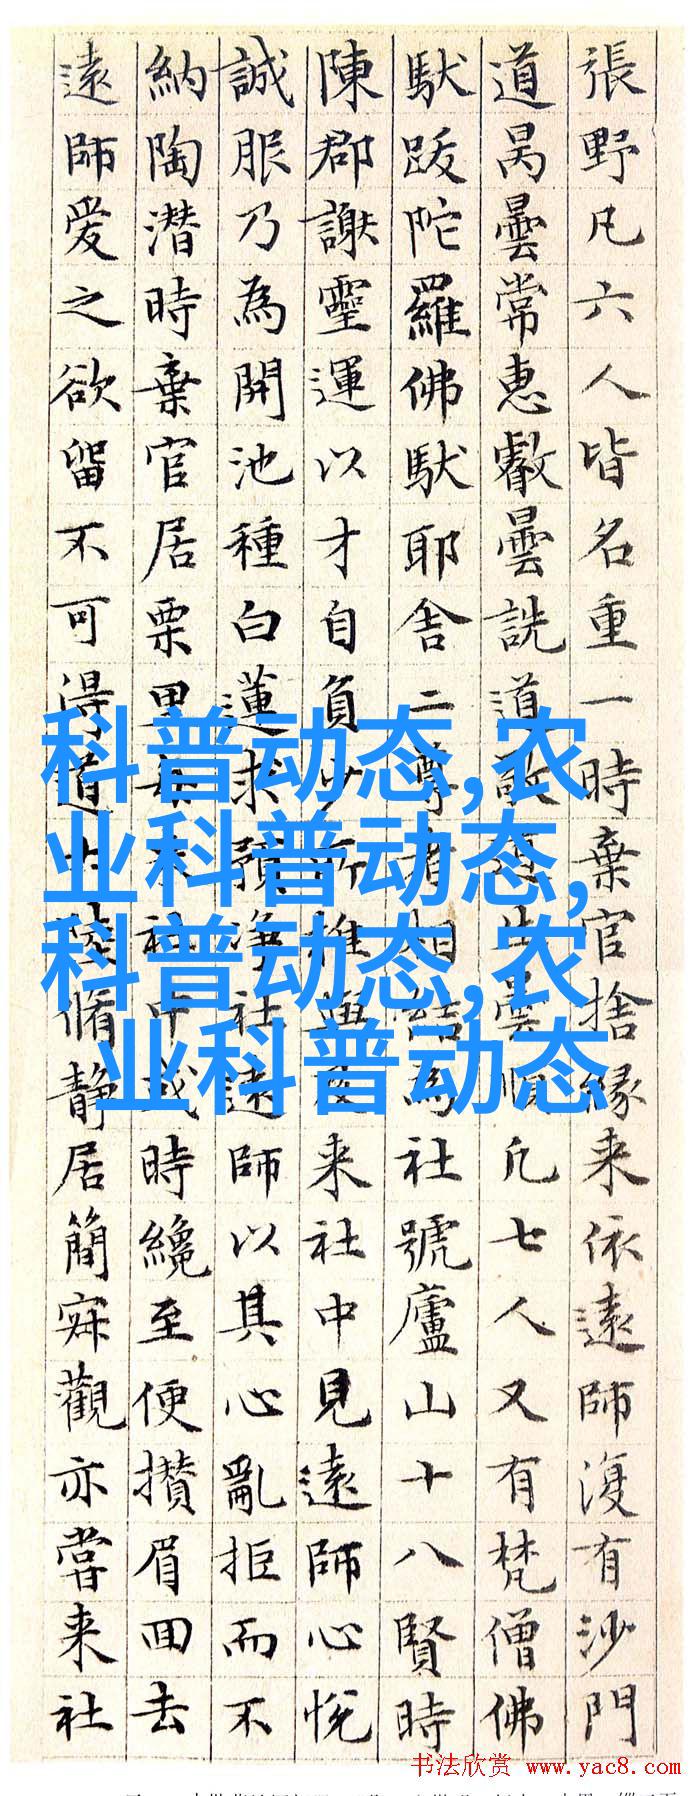 張野凡六人皆名重一時棄官捨緣来依遠師復有沙門
道昺曇常惠叡曇詵道敬曇凡七人又有梵僧佛
馱跋陀羅佛馱耶舍二尊者相結為社號廬山十八賢時
陳郡謝靈運以才自負少所推與来社中見遠師心悅
誠服乃為開池種白蓮求預淨社遠師以其心亂拒而不
納陶潜時棄官居栗里社中或時纔至便攢眉回去
遠師爱之欲留不可得道士陸脩静居簡寂觀亦嘗来社
科普动态,农
业科普动态,
科普动态,农
业科普动态
书法欣赏 www.yac8.com